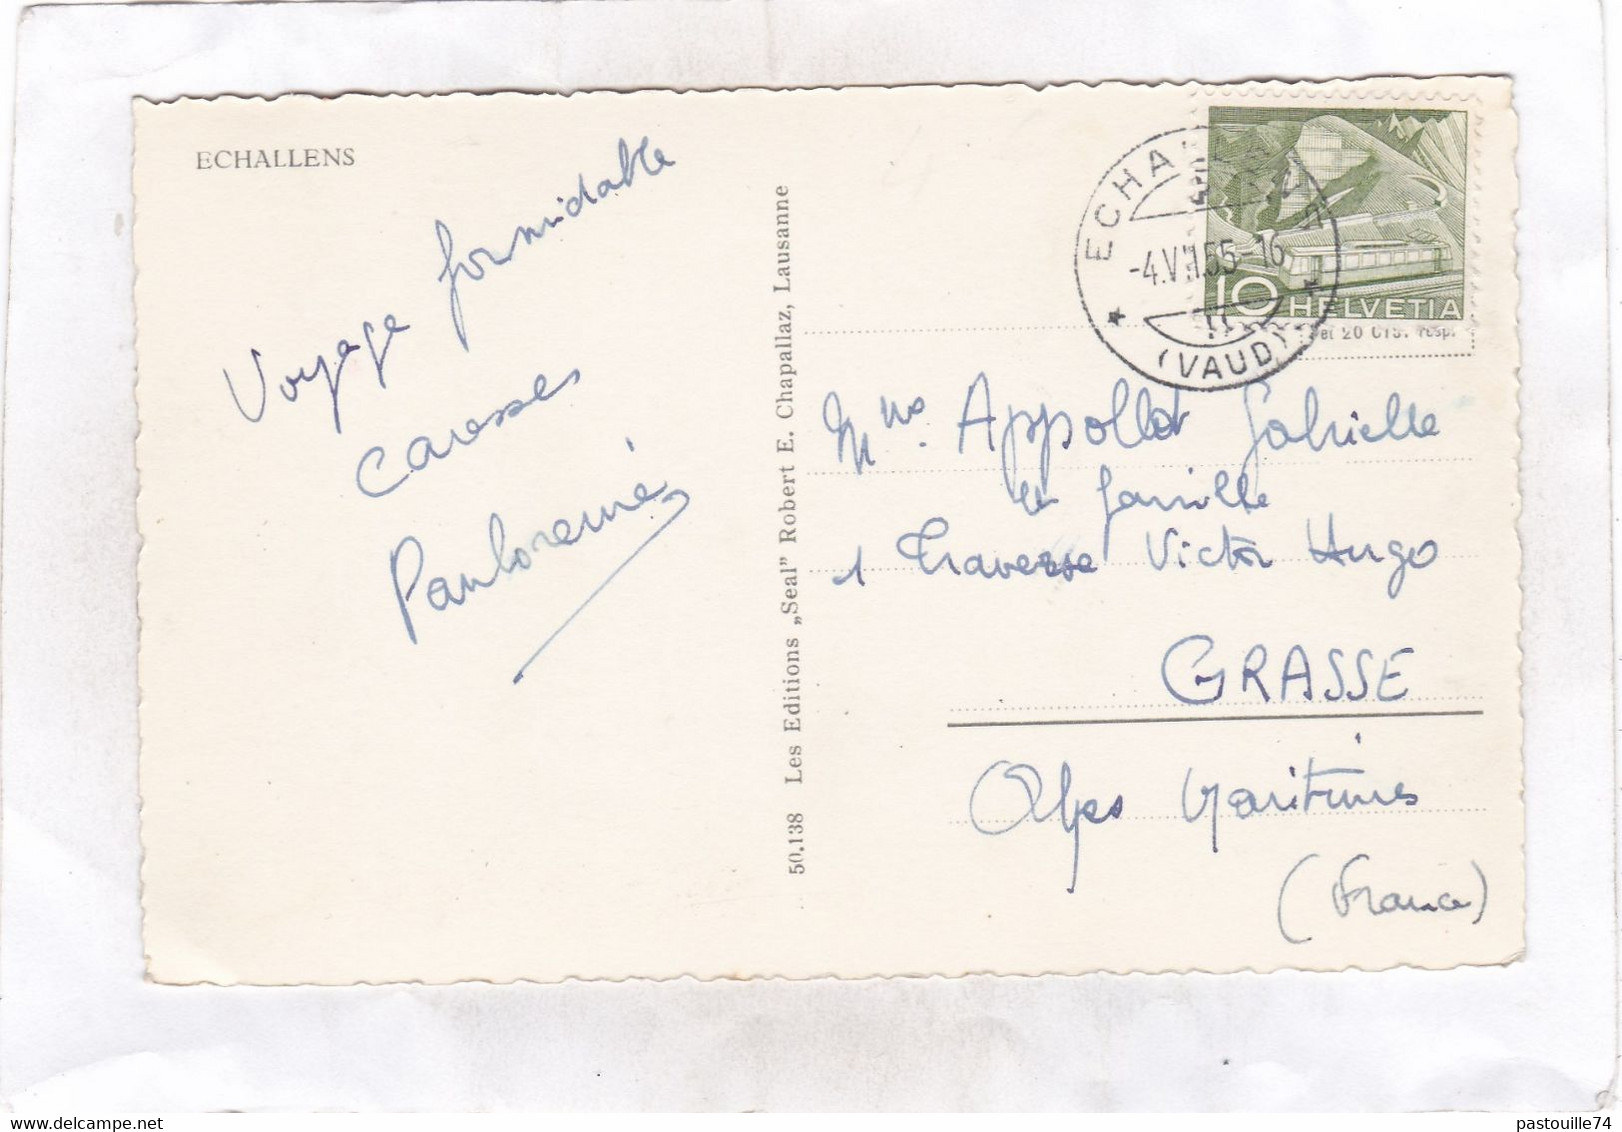 ECHALLENS
Voyage formidable
Caresses
50.138 Les Editions „Seal” Robert E. Chapallaz, Lausanne
ECHALLENS
-4.VII.55-16
(VAUD)
10 HELVETIA
et 20 cts. resp.
Appollot Gabrielle
famille
1 Traverse Victor Hugo
GRASSE
Alpes Maritimes
(France)
pastouille74